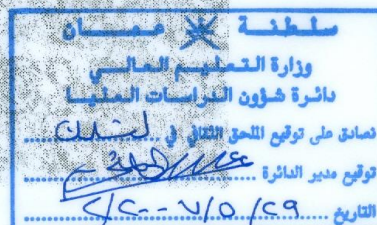 سلطنة عمان
وزارة التعليم العالي
دائرة شؤون الدراسات العليا
نصادق على توقيع الملحق الثقافي في
توقيع مدير الدائرة
التاريخ ٢٩/٥/٢٠٠٧